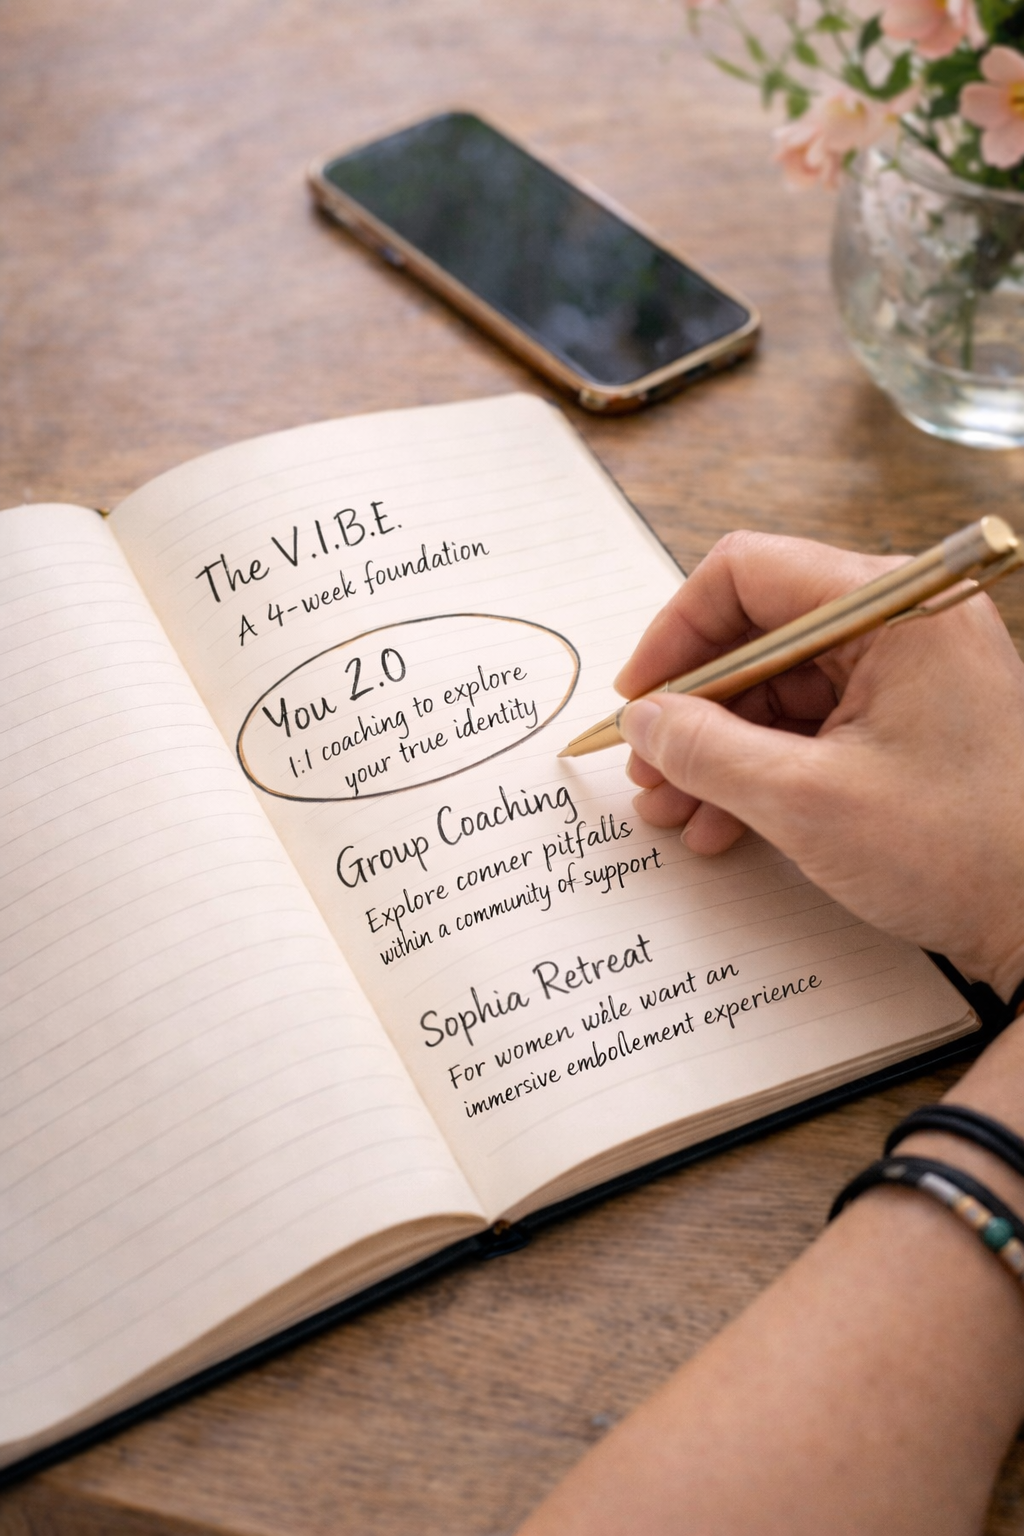 The V.I.B.E.
A 4-week foundation
You 2.0
1:1 coaching to explore
your true identity
Group Coaching
Explore conner pitfalls
within a community of support
Sophia Retreat
For women want an
immersive embollement experience